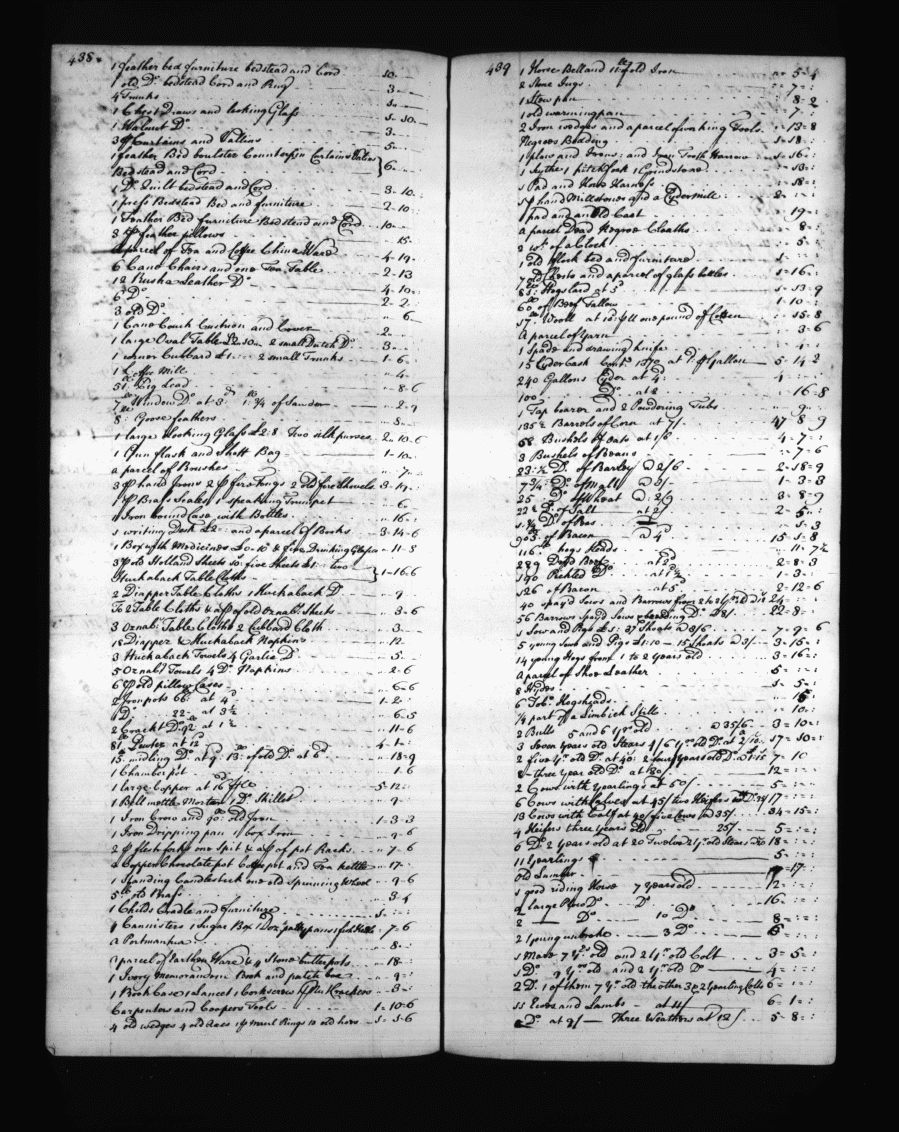 438
1 feather bed furniture bedstead and Cord 10..
1 old Do. bedstead Cord and Rug 3..
4 Trunks
1 Chest Draws and looking Glass 5-10..
1 Walnut Do. 3..
3 pr Curtains and Vallins 5..
1 feather Bed boulster Counterpin Curtains Vallins
Bedstead and Cord } 6..
1 Do. Quilt bedstead and Cord 3-10
1 press Bedstead Bed and furniture 2-10
1 Feather Bed furniture Bedstead and Cord 10..
3 pr feather pillows 15
A parcel of Tea and Coffee China Ware 4-19
6 Cane Chairs and one Tea Table 2-13
12 Rusha Leather Do. 4-10
6 Do. 2-2
3 old Do. 6
1 Cane Couch Cushion and Cover 2..
1 large Oval Table £2.10.. 2 small Dutch Do. 3..
1 corner Cubbard £1.. 2 small Trunks 1-6
1 Coffee Mill 4
51 Pig Lead 8-6
Window Do. at 3d 1 3/4 of Sawder 2-9
8 Goose feathers 8
1 large Looking Glass £2:8 Two silk purses 2-10-6
1 Gun flask and Shott Bag 1-10
a parcel of Brushes 7
3 pr hand Irons 2 pr fire Tongs 2 old fire Shovels 3-19
1 pr Brass Scales 1 speaking Trumpet 6
1 Iron bound Case with Bottles 16
1 writing Desk £2.. and a parcel of Books 3-14-6
1 Box with Medicines £0-10s & five Drinking Glasses 11-8
3 pr old Holland Sheets 50: five Sheets £1.. two
Huckaback Table Cloths } 1-16-6
2 Diapper Table Cloths 1 Huckaback Do. 9
To 2 Table Cloths & a pr of old oznabs. Sheets 3-6
3 oznabs. Table Cloths 2 Cubbard Cloth 3
18 Diapper & Huckaback Napkins 12
3 Huckaback Towels 4 Garlix Do. 5
5 Oznab Towels 4 Do. Napkins 2-6
6 pr old pillow Cases 6-6
2 Iron pots 66 at 4d 1-2
1 Do. 22 at 3½ 6-5
2 Crackt Do. 92 at 1½ 11-6
81 Pewter at 12d 4-1
15 midling Do. at 9: 13 of old Do. at 6d 18-9
1 Chamber pot 1-6
1 large Copper at 16d 5-12
1 Bell mettle Mortar 1 Do. Skillet 9
1 Iron Crow and 90 old Iron 1-3-3
1 Iron Dripping pan 1 box Iron 9-6
2 pr flesh forks one Spit & a pr of pot Racks 7-6
a Copper Chocolate pot Coffee pot and Tea kettle 17
1 Standing Candlestick one old Spinning Wheel 9-6
5 old Brass 3-4
1 Childs Cradle and furniture 5
9 Cannisters 1 Sugar Box 1 Doz. patty pans 1 fish kettle 7-6
a Portmantua 8
a parcel of Earthen Ware & 4 Stone butter pots 18
1 Ivory memorandum Book and patch box 9
1 Book Case 1 Lancet 1 Corkscrew 1 pr Nut Crackers 3
Carpenters and Coopers Tools 1-10-6
4 old wedges 4 old Axes 1 pr Maul Rings 10 old hoes 5-6
439
1 Horse Bell and 11 of old Iron 5-4
2 Stone Jugs 7
1 Stew pan 8-2
1 old warming pan 7
2 Iron wedges and a parcel of working Tools 13-8
Negroes Bedding 1-18
1 plow and Irons and Iron Tooth Harrow 1-16
1 Sythe 1 pitchfork 1 Grindstone 13
1 Pad and Horse Harness 18
1 pr hand Millstones and a Cydermill 2
1 pad and an Old Cart 19
a parcel Dead Negroe Cloaths 8
2 wts. of a Clock 5
1 old flock bed and furniture
7 old Chests and a parcel of glass bottles 1-16
85 Hogs lard at 5d 1-13-9
60 of Beef Tallow 1-10
17 Wooll at 10d & one pound of Cotten 15-8
A parcel of Yarn 3-6
1 Spade and drawing knife 4
15 Cyder Cask Cont. 1370 at 1d pr Gallon 5-14-2
240 Gallons Cyder at 4: 4
100 Do. at 2 16-8
1 Tap borer and 2 Powdering Tubs 9
135½ Barrels of Corn at 7/- 47-8-9
58 Bushels of Oats at 1/6 4-7
3 Bushels of Beans 7-6
23½ Do. of Barley @ 2/6 2-18-9
7¾ Do. of Malt @ 3/- 1-3-3
25 Do. of Wheat @ 2/9 3-8-9
22½ Do. of Salt at 2/ 2-5
Do. of Peas 5-3
903 of Bacon @ 4d 15-1-8
116 hogs Heads 11-7½
289 Dryd Beef at 2d 2-8-3
190 Pickled Do. 1-3
126 of Bacon at 5d 2-12-6
40 spay'd Sows and Barrows from 2 to 2½ yrs. old @ 12 24
56 Barrows Spay'd Sows & breeding Do. @ 8/ 22-8
1 Sow and Pigs £1: 37 Shoats @ 3/6 7-9-6
5 young Sows and Pigs £1:10 - 15 Shoats @ 3/- 3-15
14 young Hogs from 1 to 2 years old 3-16
A parcel of Shoe Leather 5
8 Hydes 1-5
6 Tob. Hogsheads 15
¼ part of a Limbick Still 10
2 Bulls 5 and 6 yrs. old @ 35/6 3-10
3 Seven years old Stears 4/6 yrs. old Do. at 2/10 17-10
2 five yrs. old Do. at 40: 2 four years old Do. @ 1:15 7-10
8 three year old Do. at 30/ 12
2 Cows with yearlings at 50/ 5
6 Cows with Calves at 45/ two Heifers with Do. 17
13 Cows with Calf at 40/ five Cows @ 35/ 34-15
4 Heifers three years old 25/ 5
6 Do. 2 years old at 20 Twelve 2 yrs. old Stears @ 20 18
11 Yearlings 5
Old Lumber 17
1 good riding Horse 7 Years old 12
2 large Plow Do. Do. 16
2 Do. 10 Do. 8
2 Young unbroke 3 Do. 6
1 Mare 7 yrs. old and 2 yrs. old Colt 3-5
1 Do. 9 yrs. old and 2 yrs. old Do. 4
2 Do. 1 of them 7 yrs. old the other 3 & 2 Yearling Colts 6
Ewes and Lambs at 11/ 6-1
Do. at 9/ Three Weathers at 12/ 5-8